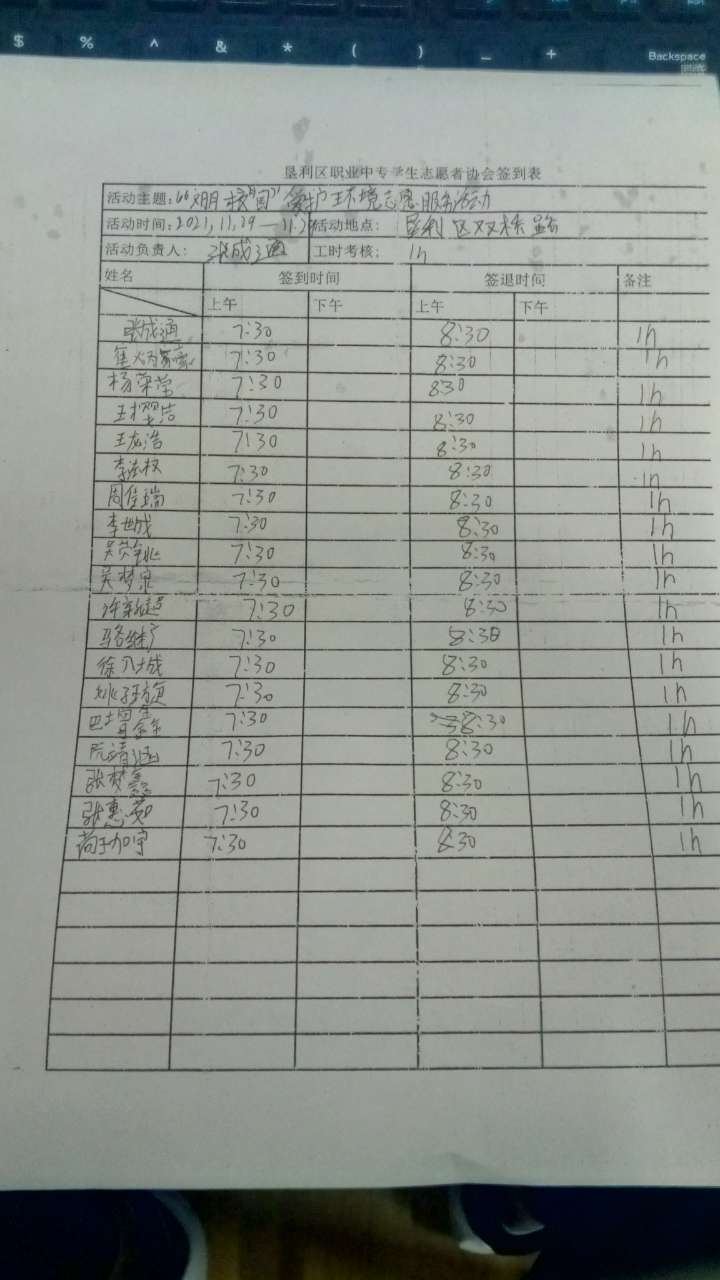 $ % ^ & * ( ) _ + Backspace
垦利区职业中专学生志愿者协会签到表
活动主题：“文明校园”爱护环境志愿服务活动
活动时间：2021.11.29 — 11.29 活动地点：垦利区双桥路
活动负责人：张成通 工时考核：1h
姓名 签到时间 签退时间 备注
上午 下午 上午 下午
张成通 7:30 8:30 1h
7:30 8:30 1h
杨荣 7:30 830 1h
王 洁 7:30 8:30 1h
王龙浩 7:30 8:30 1h
李 权 7:30 8:30 1h
周佳瑞 7:30 8:30 1h
李世成 7:30 8:30 1h
吴 7:30 8:30 1h
吴梦泉 7:30 8:30 1h
许 超 7:30 8:30 1h
7:30 8:30 1h
徐 城 7:30 8:30 1h
姚 旗 7:30 8:30 1h
巴 鑫 7:30 8:30 1h
阮靖涵 7:30 8:30 1h
张梦鑫 7:30 8:30 1h
张惠茹 7:30 8:30 1h
尚 加宇 7:30 8:30 1h